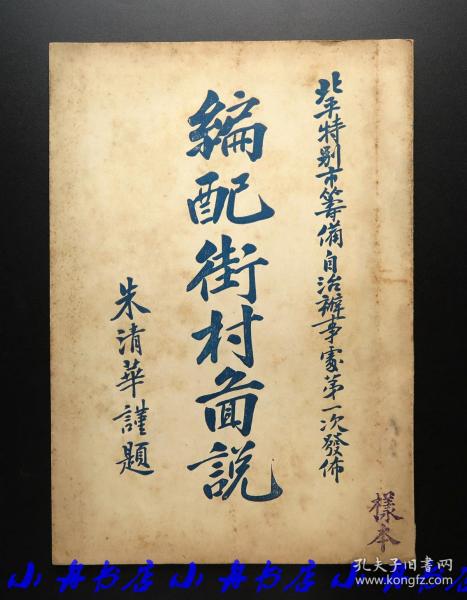 北平特别市籌備自治辦事處第一次發佈
編配街村啚説
朱清華謹題
樣本
小丹书店 小丹书店 小丹书店
孔夫子旧书网
www.kongfz.com